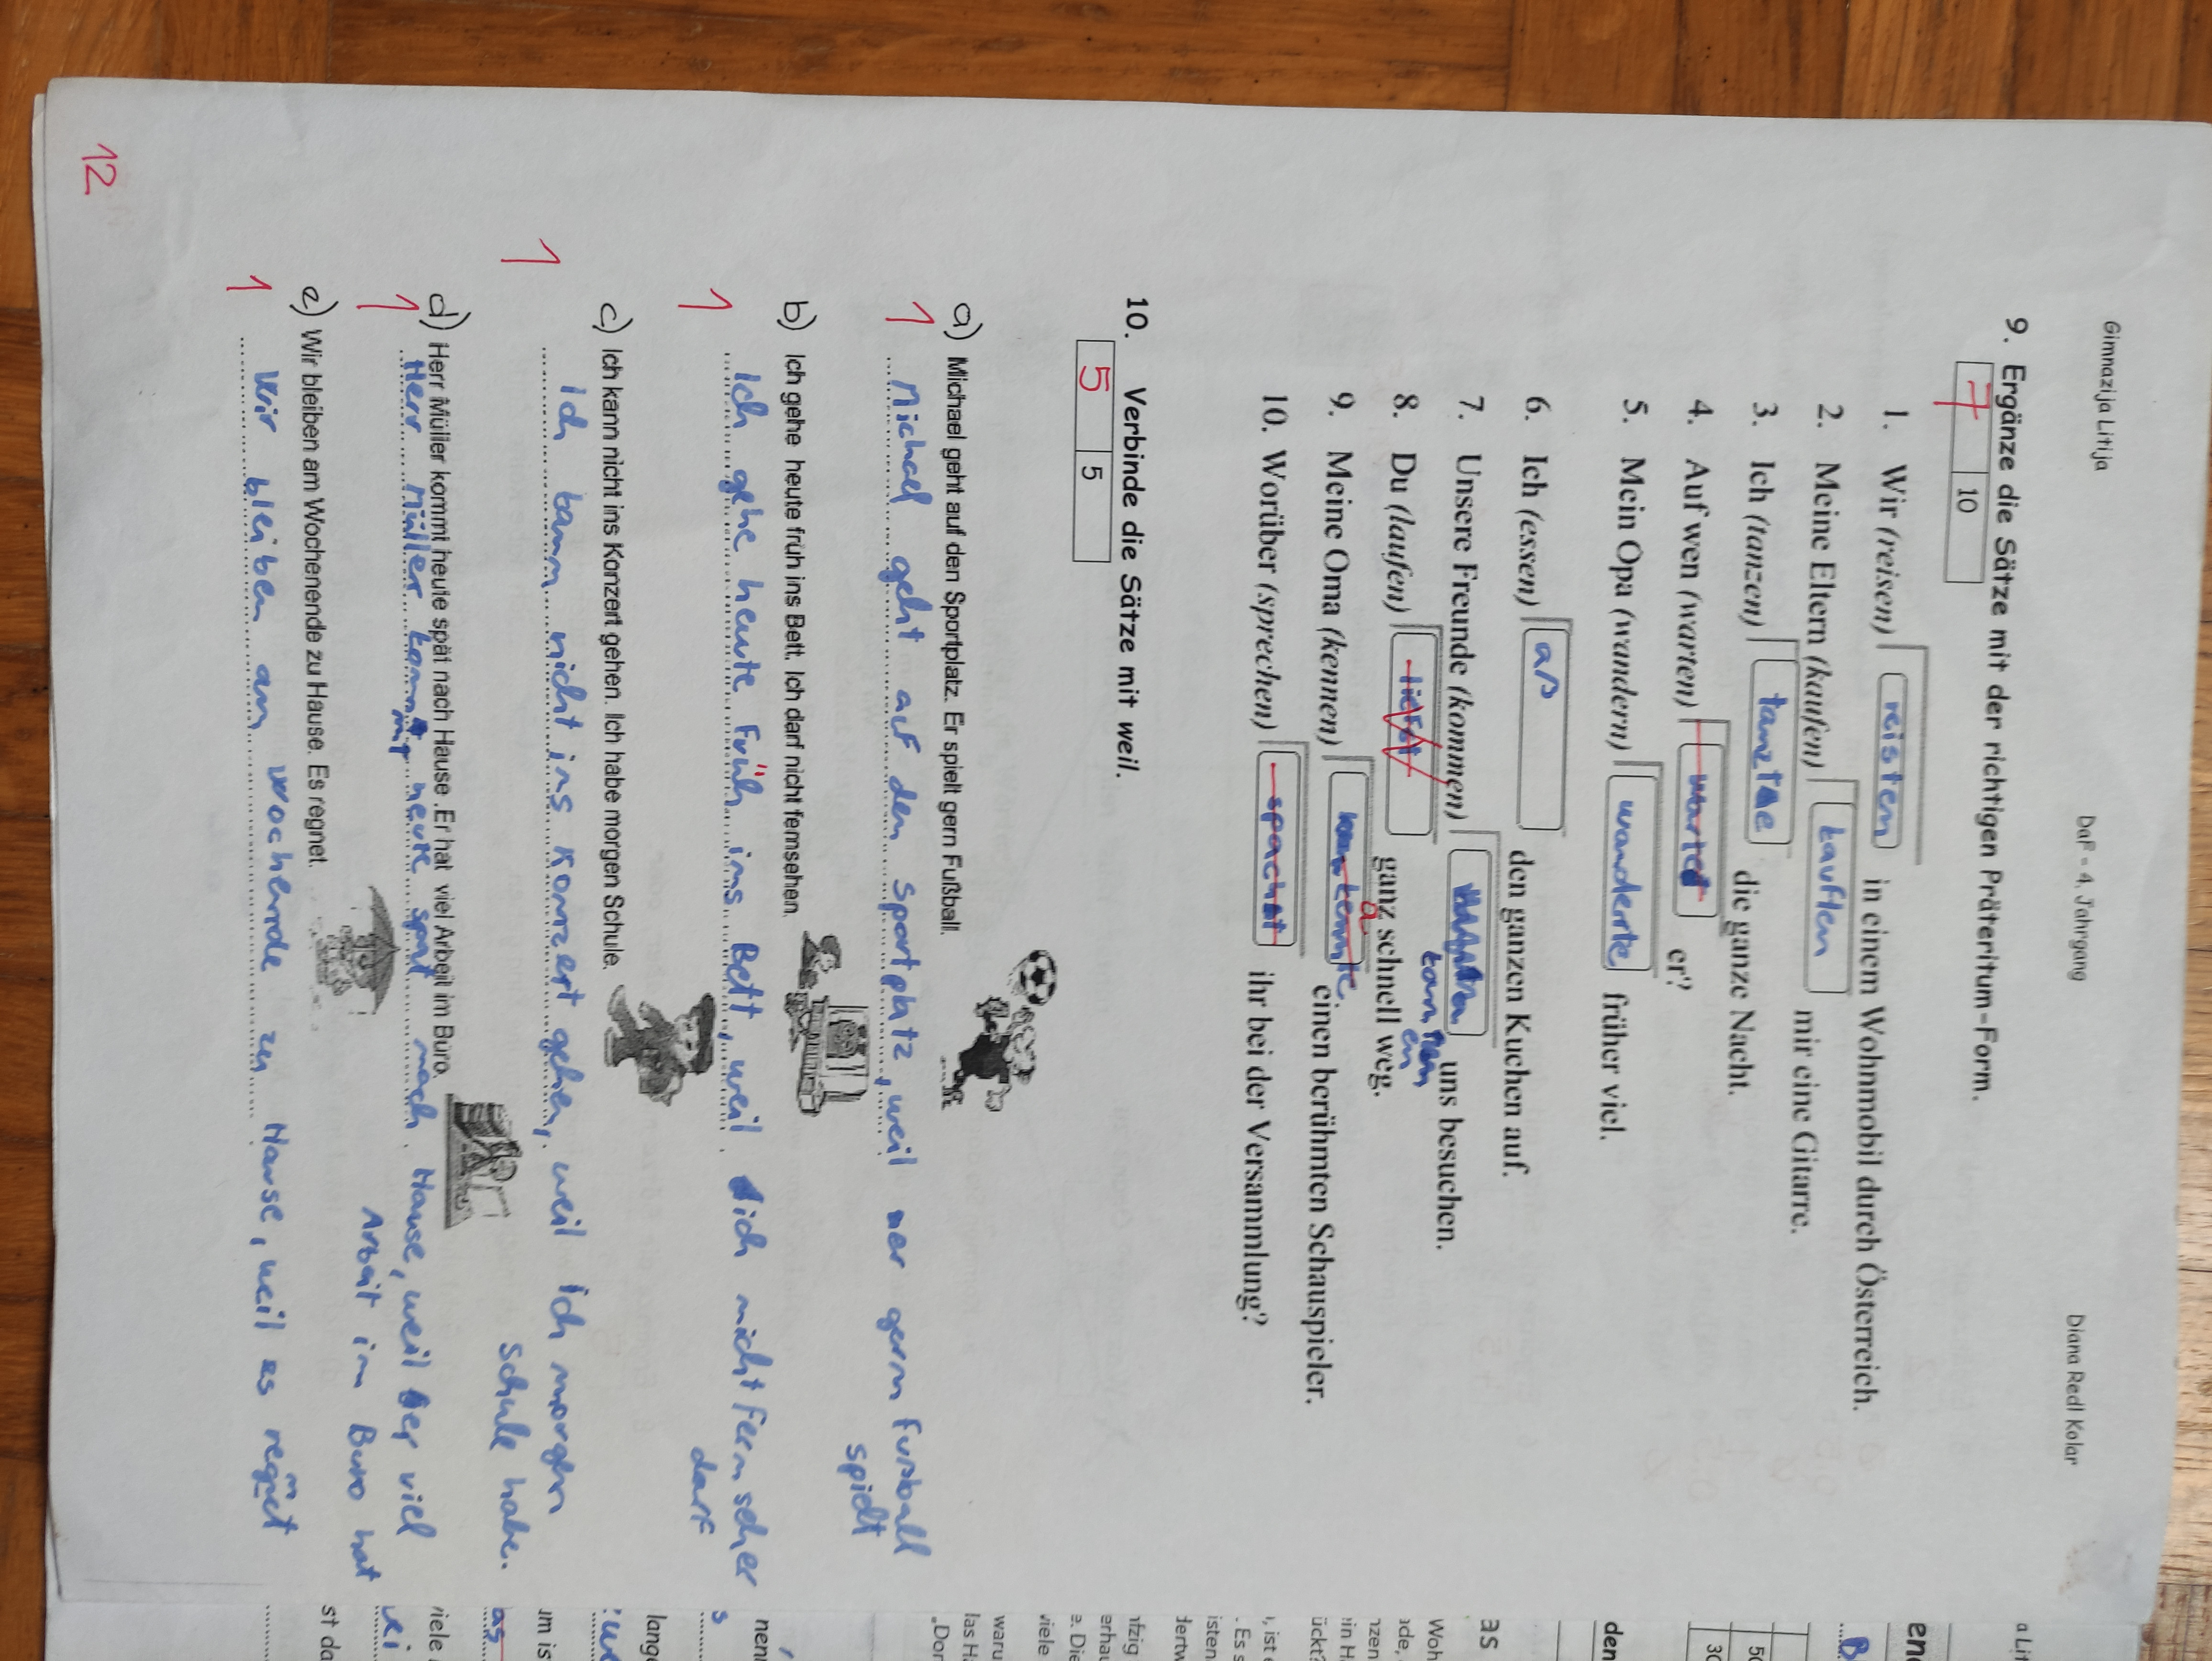 Gimnazija Litija DaF - 4. Jahrgang Diana Redl Kolar
9. Ergänze die Sätze mit der richtigen Präteritum-Form.
7 10
1. Wir (reisen) reisten in einem Wohnmobil durch Österreich.
2. Meine Eltern (kaufen) kauften mir eine Gitarre.
3. Ich (tanzen) tanzte die ganze Nacht.
4. Auf wen (warten) wartet er?
5. Mein Opa (wandern) wanderte früher viel.
6. Ich (essen) aß den ganzen Kuchen auf.
7. Unsere Freunde (kommen) uns besuchen.
8. Du (laufen) liefst ganz schnell weg.
9. Meine Oma (kennen) kennte einen berühmten Schauspieler.
a
10. Worüber (sprechen) spachst ihr bei der Versammlung?
10. Verbinde die Sätze mit weil.
5 5
a) Michael geht auf den Sportplatz. Er spielt gern Fußball.
1 Michael geht auf den Sportplatz, weil er gern Fußball
spielt
b) Ich gehe heute früh ins Bett. Ich darf nicht fernsehen.
1 Ich gehe heute früh ins Bett, weil ich nicht fernsehen
darf
c) Ich kann nicht ins Konzert gehen. Ich habe morgen Schule.
1 Ich kann nicht ins Konzert gehen, weil ich morgen
Schule habe.
d) Herr Müller kommt heute spät nach Hause. Er hat viel Arbeit im Büro.
1 Herr Müller kommt heute spät nach Hause, weil er viel
Arbeit im Buro hat
e) Wir bleiben am Wochenende zu Hause. Es regnet.
1 Wir bleiben am Wochenende zu Hause, weil es regnet
12